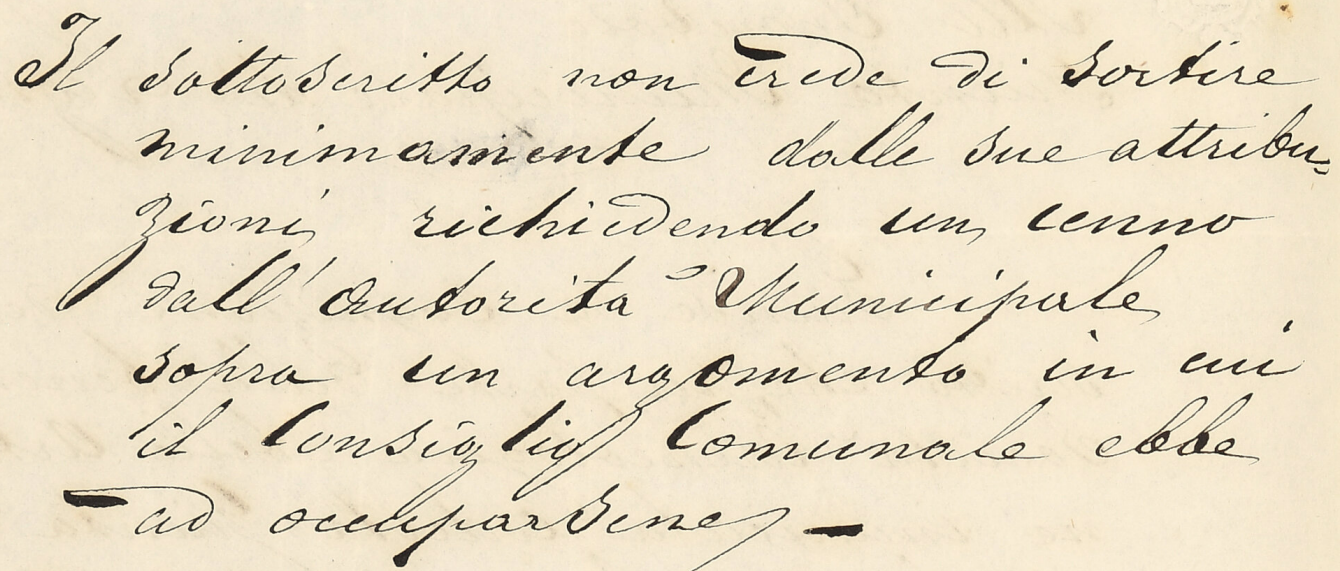 Il sottoscritto non crede di sortire
minimamente dalle sue attribu=
zioni richiedendo un cenno
dall'autorità Municipale
sopra un argomento in cui
il Consiglio Comunale ebbe
ad occuparsene. —